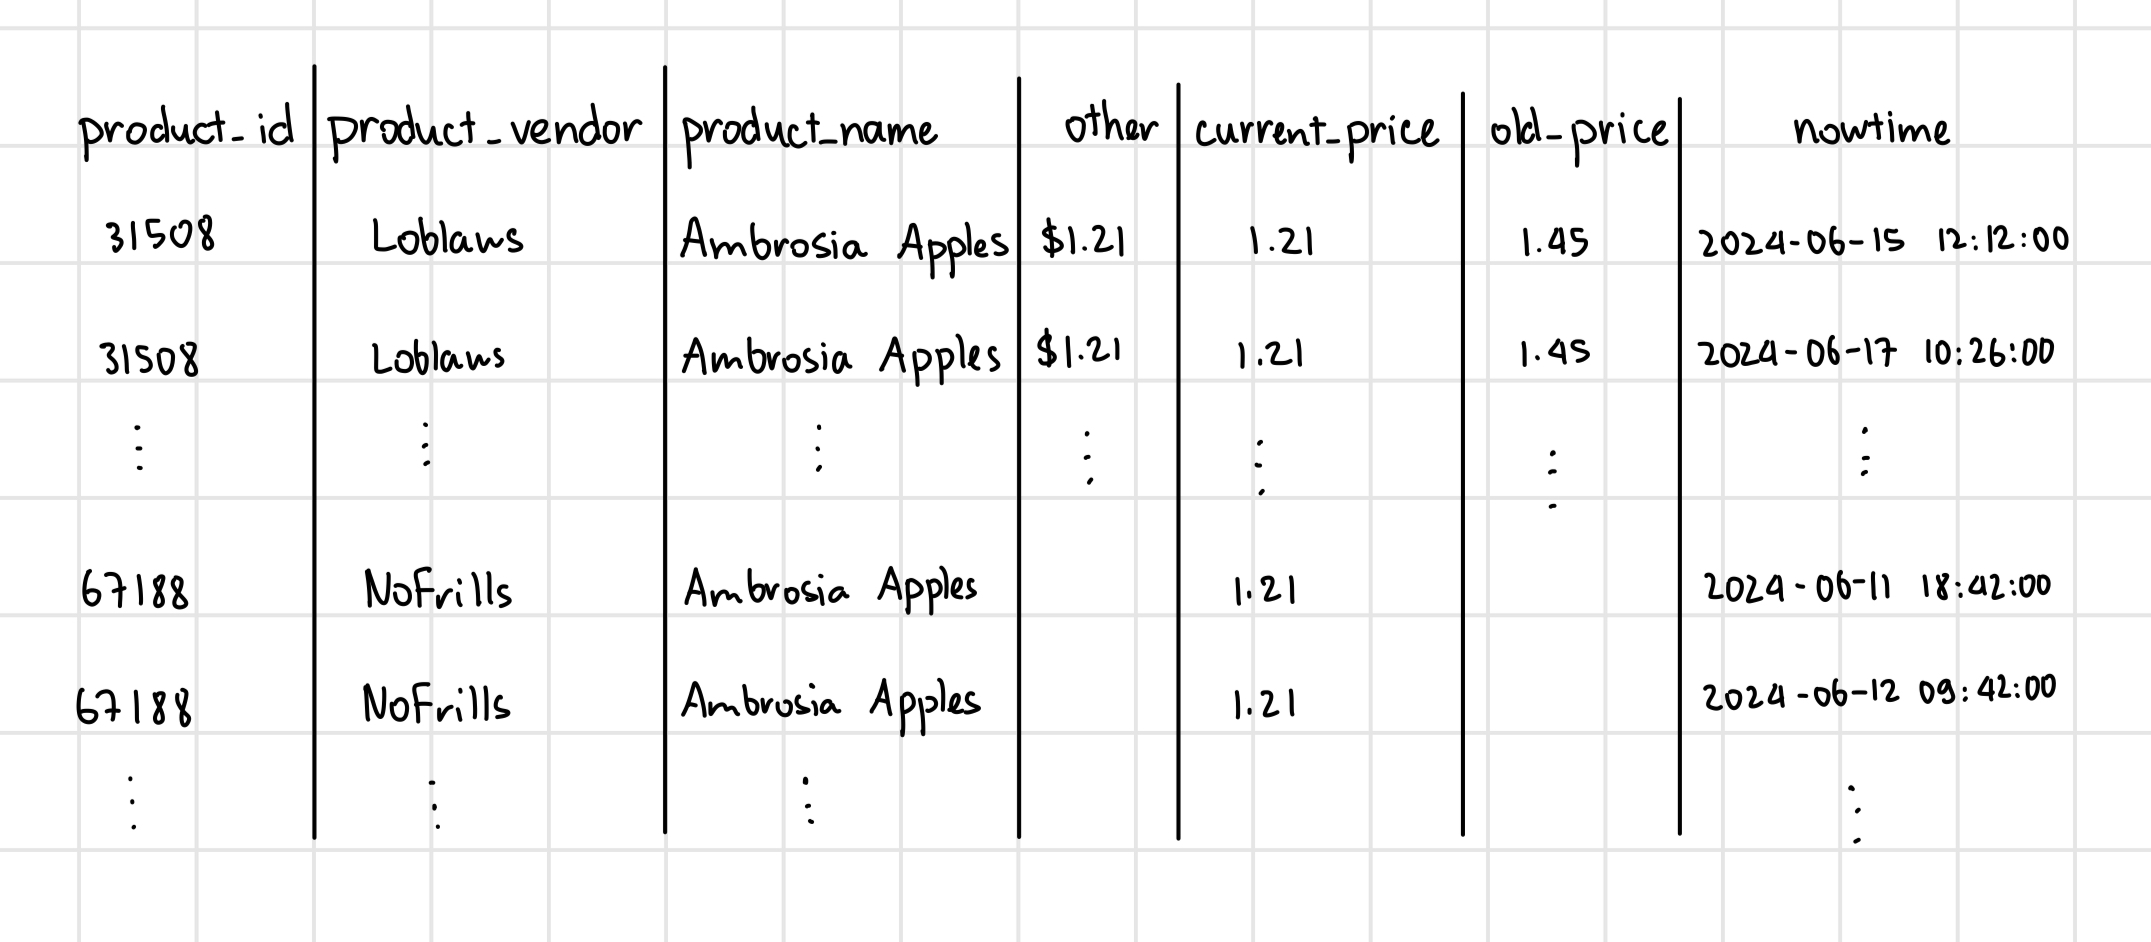 product_id product_vendor product_name other current_price old_price nowtime
31508 Loblaws Ambrosia Apples $1.21 1.21 1.45 2024-06-15 12:12:00
31508 Loblaws Ambrosia Apples $1.21 1.21 1.45 2024-06-17 10:26:00
⋮ ⋮ ⋮ ⋮ ⋮ ⋮ ⋮
67188 NoFrills Ambrosia Apples 1.21 2024-06-11 18:42:00
67188 NoFrills Ambrosia Apples 1.21 2024-06-12 09:42:00
⋮ ⋮ ⋮ ⋮